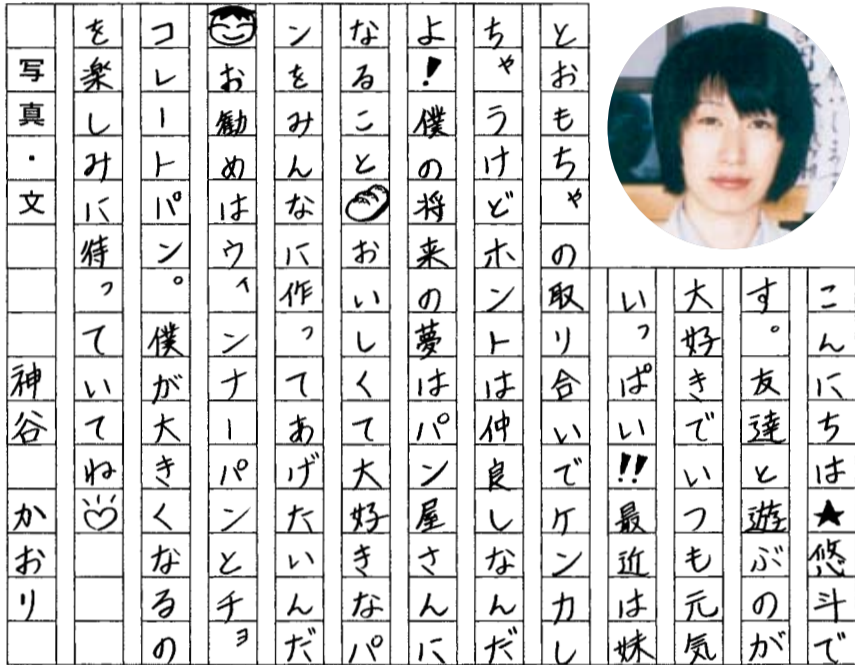 こんにちは★悠斗で
す。友達と遊ぶのが
大好きでいつも元気
いっぱい!!最近は妹
とおもちゃの取り合いでケンカし
ちゃうけどホントは仲良しなんだ
よ!僕の将来の夢はパン屋さんに
なることおいしくて大好きなパ
ンをみんなに作ってあげたいんだ
お勧めはウィンナーパンとチョ
コレートパン。僕が大きくなるの
を楽しみに待っていてね
写真・文 神谷 かおり